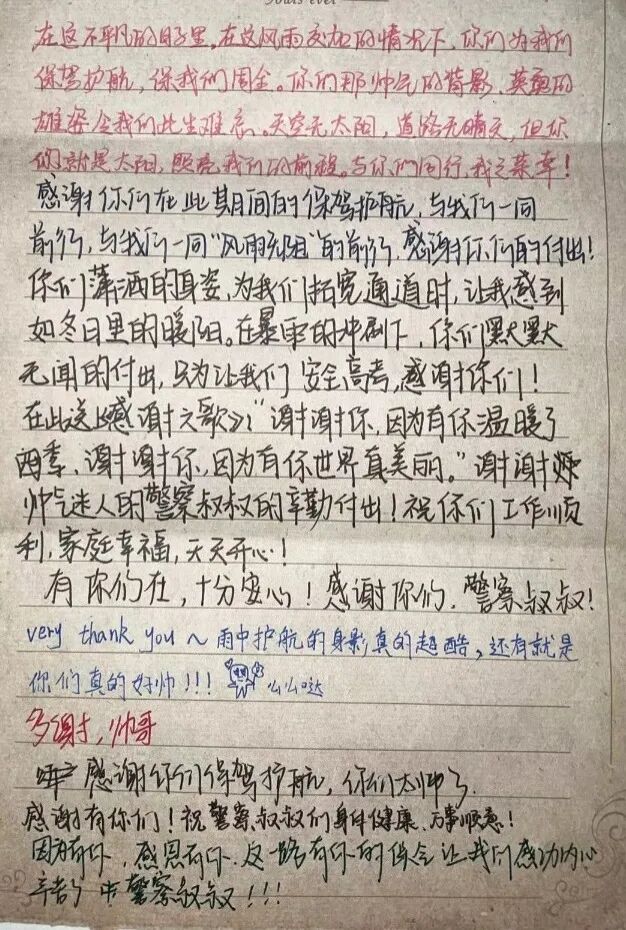 在这不平凡的日子里。在这风雨交加的情况下，你们为我们
保驾护航，保我们周全。你们那帅气的背影，英勇的
雄姿令我们此生难忘。天空无太阳，道路无晴天，但你
们就是太阳，照亮我们的前程。与你们同行，我之荣幸！
感谢你们在此期间的保驾护航，与我们一同
前行，与我们一同“风雨无阻”的前行。感谢你们的付出！
你们潇洒的身姿，为我们拓宽通道时，让我感到
如冬日里的暖阳。在暴雨的冲刷下，你们默默
无闻的付出，只为让我们安全高考，感谢你们！
在此送上《感谢之歌》：“谢谢你，因为有你温暖了
四季，谢谢你，因为有你世界真美丽。”谢谢
帅气迷人的警察叔叔的辛勤付出！祝你们工作顺
利，家庭幸福，天天开心！
有你们在，十分安心！感谢你们，警察叔叔！
very thank you ~ 雨中护航的身影真的超酷，还有就是
你们真的好帅！！！ 么么哒
多谢，帅哥
感谢你们保驾护航，你们太帅了
感谢有你们！祝警察叔叔们身体健康，万事顺意！
因为有你，感恩有你，这一路有你的保 让我们感动内心
辛苦了 警察叔叔！！！